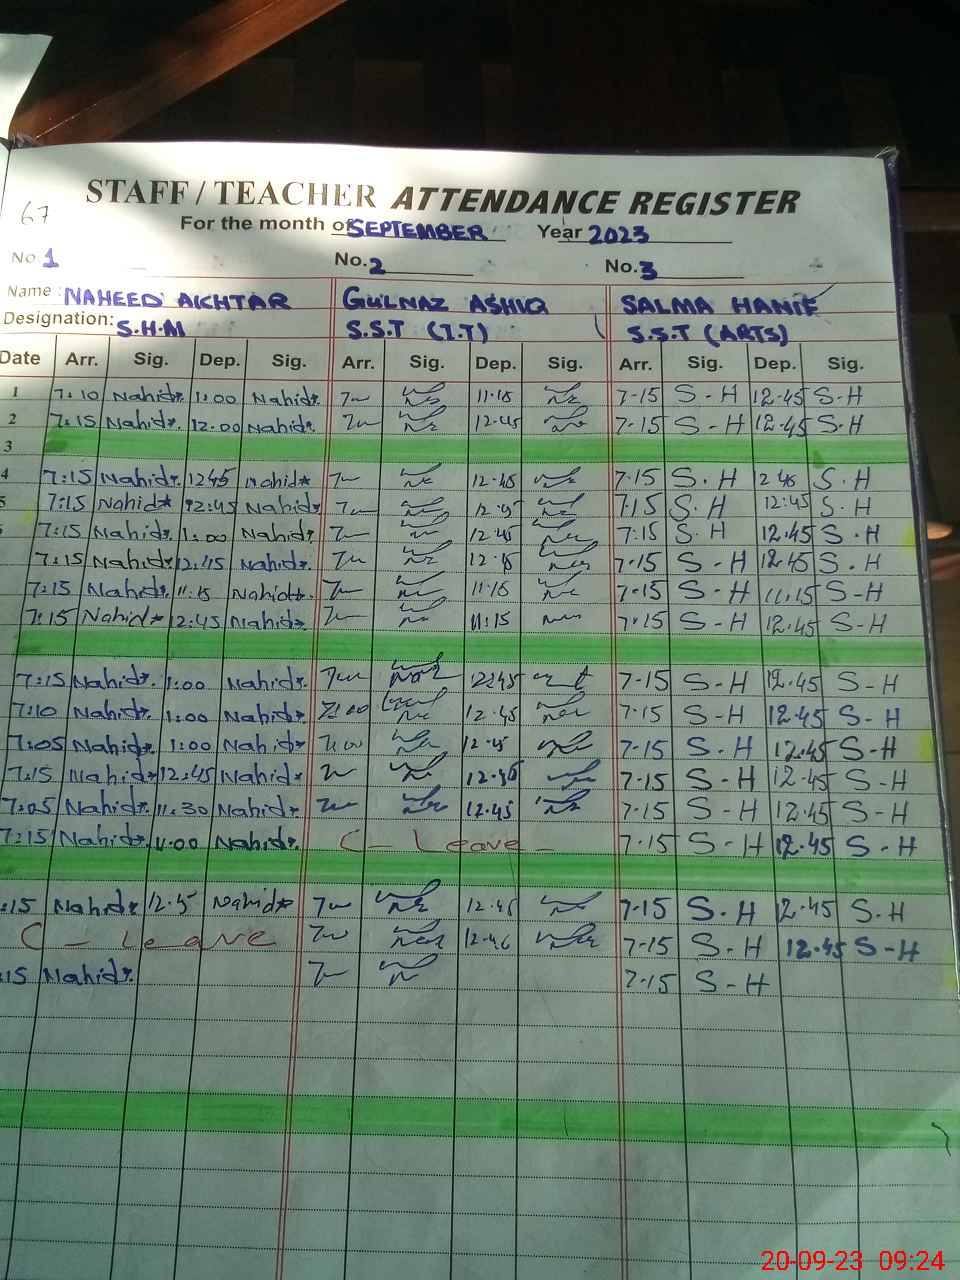 STAFF / TEACHER ATTENDANCE REGISTER
67
For the month of SEPTEMBER Year 2023
No 1 No. 2 No. 3
Name: NAHEED AKHTAR GULNAZ ASHIQ SALMA HANIF
Designation: S.H.M S.S.T (I.T) S.S.T (ARTS)
Date Arr. Sig. Dep. Sig. Arr. Sig. Dep. Sig. Arr. Sig. Dep. Sig.
1 7:10 Nahid 1:00 Nahid 11.15 7-15 S-H 12.45 S-H
2 7:15 Nahid 12.00 Nahid 12.45 7-15 S-H 12.45 S-H
3
4 7:15 Nahid 1245 Nahid 12.45 7-15 S.H 12 45 S.H
5 7:15 Nahid 12:45 Nahid 12.45 7:15 S.H 12:45 S.H
7:15 Nahid 1:00 Nahid 12.45 7:15 S.H 12.45 S.H
7:15 Nahid 12.45 Nahid 12.45 7-15 S-H 12.45 S.H
7:15 Nahid 11:15 Nahid 11.15 7-15 S-H 11.15 S-H
7:15 Nahid 12:45 Nahid 11.15 7-15 S-H 12.45 S-H
7:15 Nahid 1:00 Nahid 12:45 7-15 S-H 12.45 S-H
7:10 Nahid 1:00 Nahid 7:00 12.45 7-15 S-H 12.45 S-H
7:05 Nahid 1:00 Nahid 7:00 12.45 7-15 S-H 12.45 S-H
7:15 Nahid 12:45 Nahid 12.45 7-15 S-H 12.45 S-H
7:05 Nahid 11.30 Nahid 12.45 7-15 S-H 12.45 S-H
7:15 Nahid Nahid C - Leave - 7-15 S-H 12.45 S-H
:15 Nahid Nahid 12.45 7-15 S.H 12.45 S.H
C - Leave 12.45 7-15 S-H 12.45 S-H
:15 Nahid 7-15 S-H
20-09-23 09:24